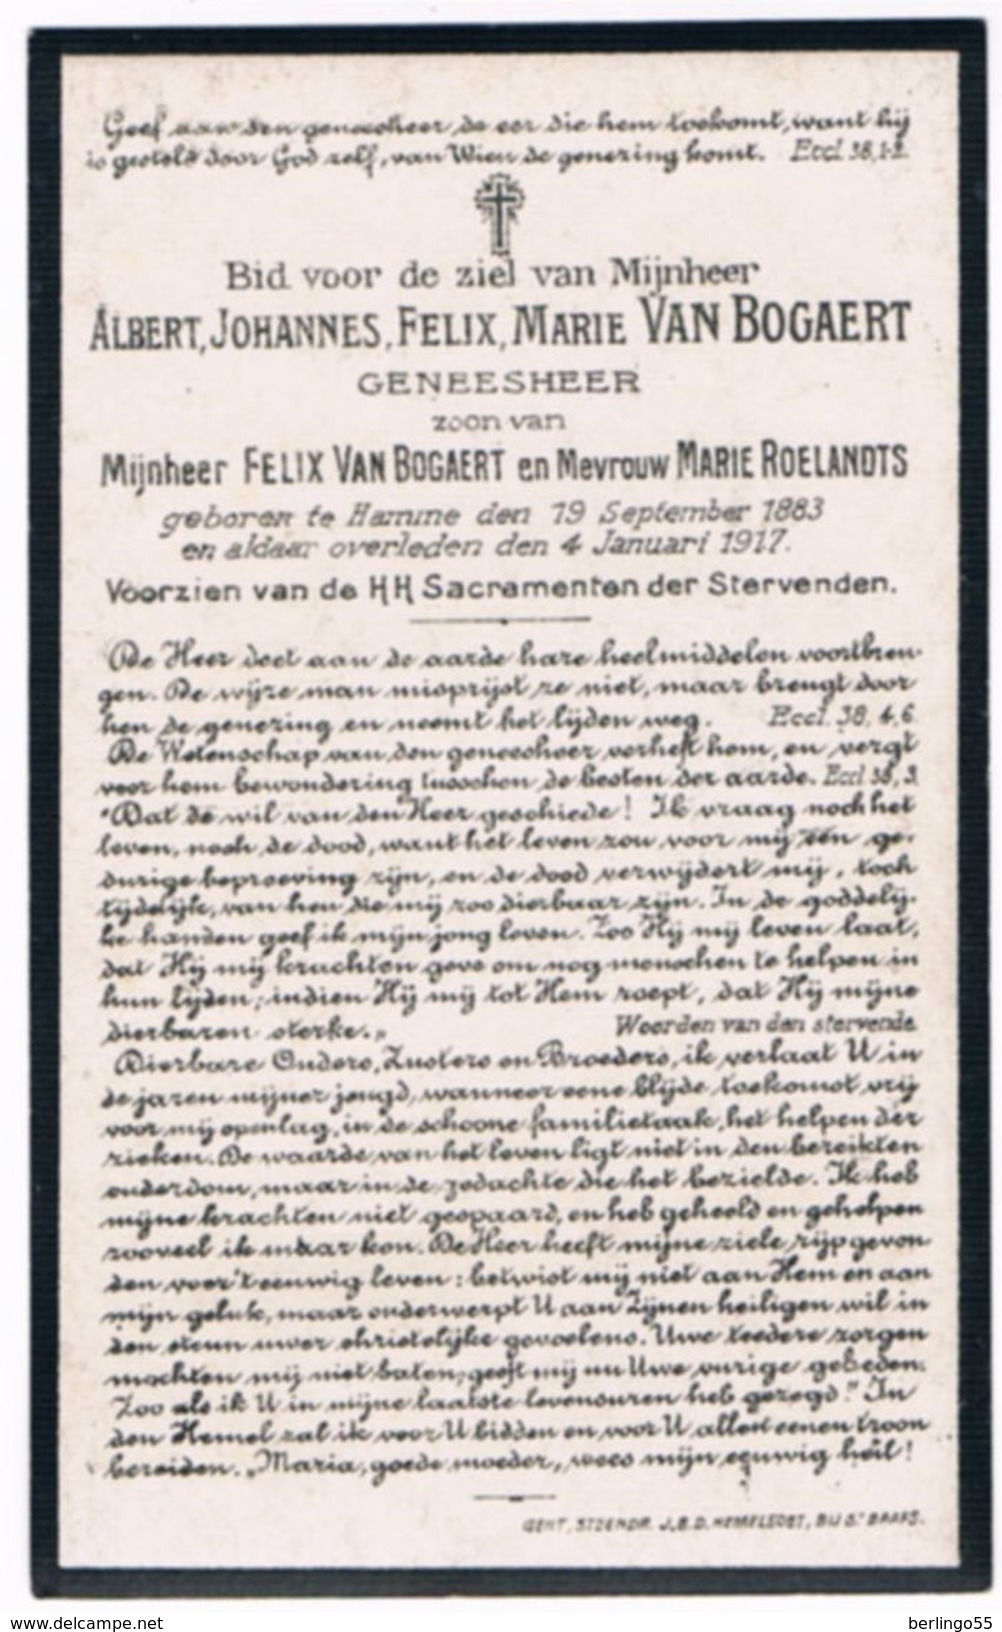 Geef aan den geneesheer de eer die hem toekomt, want hij
is gesteld door God zelf, van Wien de genezing komt. Eccl. 38, 1-2.
Bid voor de ziel van Mijnheer
ALBERT, JOHANNES, FELIX, MARIE VAN BOGAERT
GENEESHEER
zoon van
Mijnheer FELIX VAN BOGAERT en Mevrouw MARIE ROELANDTS
geboren te Hamme den 19 September 1883
en aldaar overleden den 4 Januari 1917.
Voorzien van de HH Sacramenten der Stervenden.
De Heer doet aan de aarde hare heelmiddelen voortbren-
gen. De wijze man misprijst ze niet, maar brengt door
hen de genezing en neemt het lijden weg. Eccl. 38, 4.6
De Wetenschap van den geneesheer verheft hem, en vergt
voor hem bewondering tusschen de besten der aarde. Eccl 38, 3.
"Dat de wil van den Heer geschiede! Ik vraag noch het
leven, noch de dood, want het leven zou voor mij één ge-
durige beproeving zijn, en de dood verwijdert mij, toch
tijdelijk, van hen die mij zoo dierbaar zijn. In de goddelij-
ke handen geef ik mijn jong leven. Zoo Hij mij leven laat,
dat Hij mij krachten geve om nog menschen te helpen in
hun lijden; indien Hij mij tot Hem roept, dat Hij mijne
dierbaren sterke.„ Woorden van den stervende.
Dierbare Ouders, Zusters en Broeders, ik verlaat U in
de jaren mijner jeugd, wanneer eene blijde toekomst vrij
voor mij openlag, in de schoone familietaak, het helpen der
zieken. De waarde van het leven ligt niet in den bereikten
ouderdom, maar in de gedachte die het bezielde. Ik heb
mijne krachten niet gespaard, en heb geheeld en geholpen
zooveel ik maar kon. De Heer heeft mijne ziele rijp gevon-
den voor 't eeuwig leven: betwist mij niet aan Hem en aan
mijn geluk, maar onderwerpt U aan Zijnen heiligen wil in
den steun uwer christelijke gevoelens. Uwe teedere zorgen
mochten mij niet baten; geeft mij nu Uwe vurige gebeden.
Zoo als ik U in mijne laatste levensuren heb gezegd." In
den Hemel zal ik voor U bidden en voor U allen eenen troon
bereiden. „Maria, goede moeder, wees mijn eeuwig heil!
GENT, STEENDR. J.B.D. HEMELSOET, BIJ St BAAFS.
www.delcampe.net
berlingo55